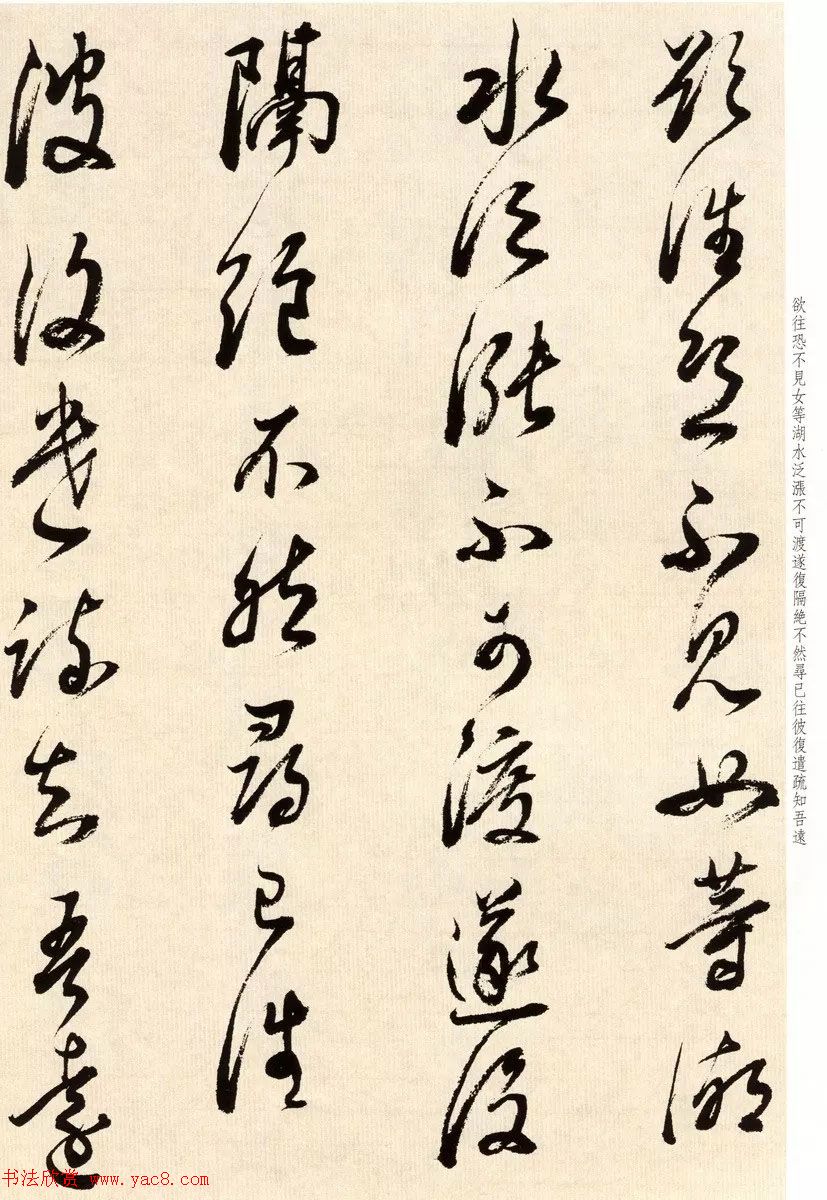 欲往恐不見女等湖
水泛漲不可渡遂復
隔絕不然尋已往
彼復遣疏知吾遠
欲往恐不見女等湖水泛漲不可渡遂復隔絶不然尋已往彼復遣疏知吾遠
书法欣赏 www.yac8.com